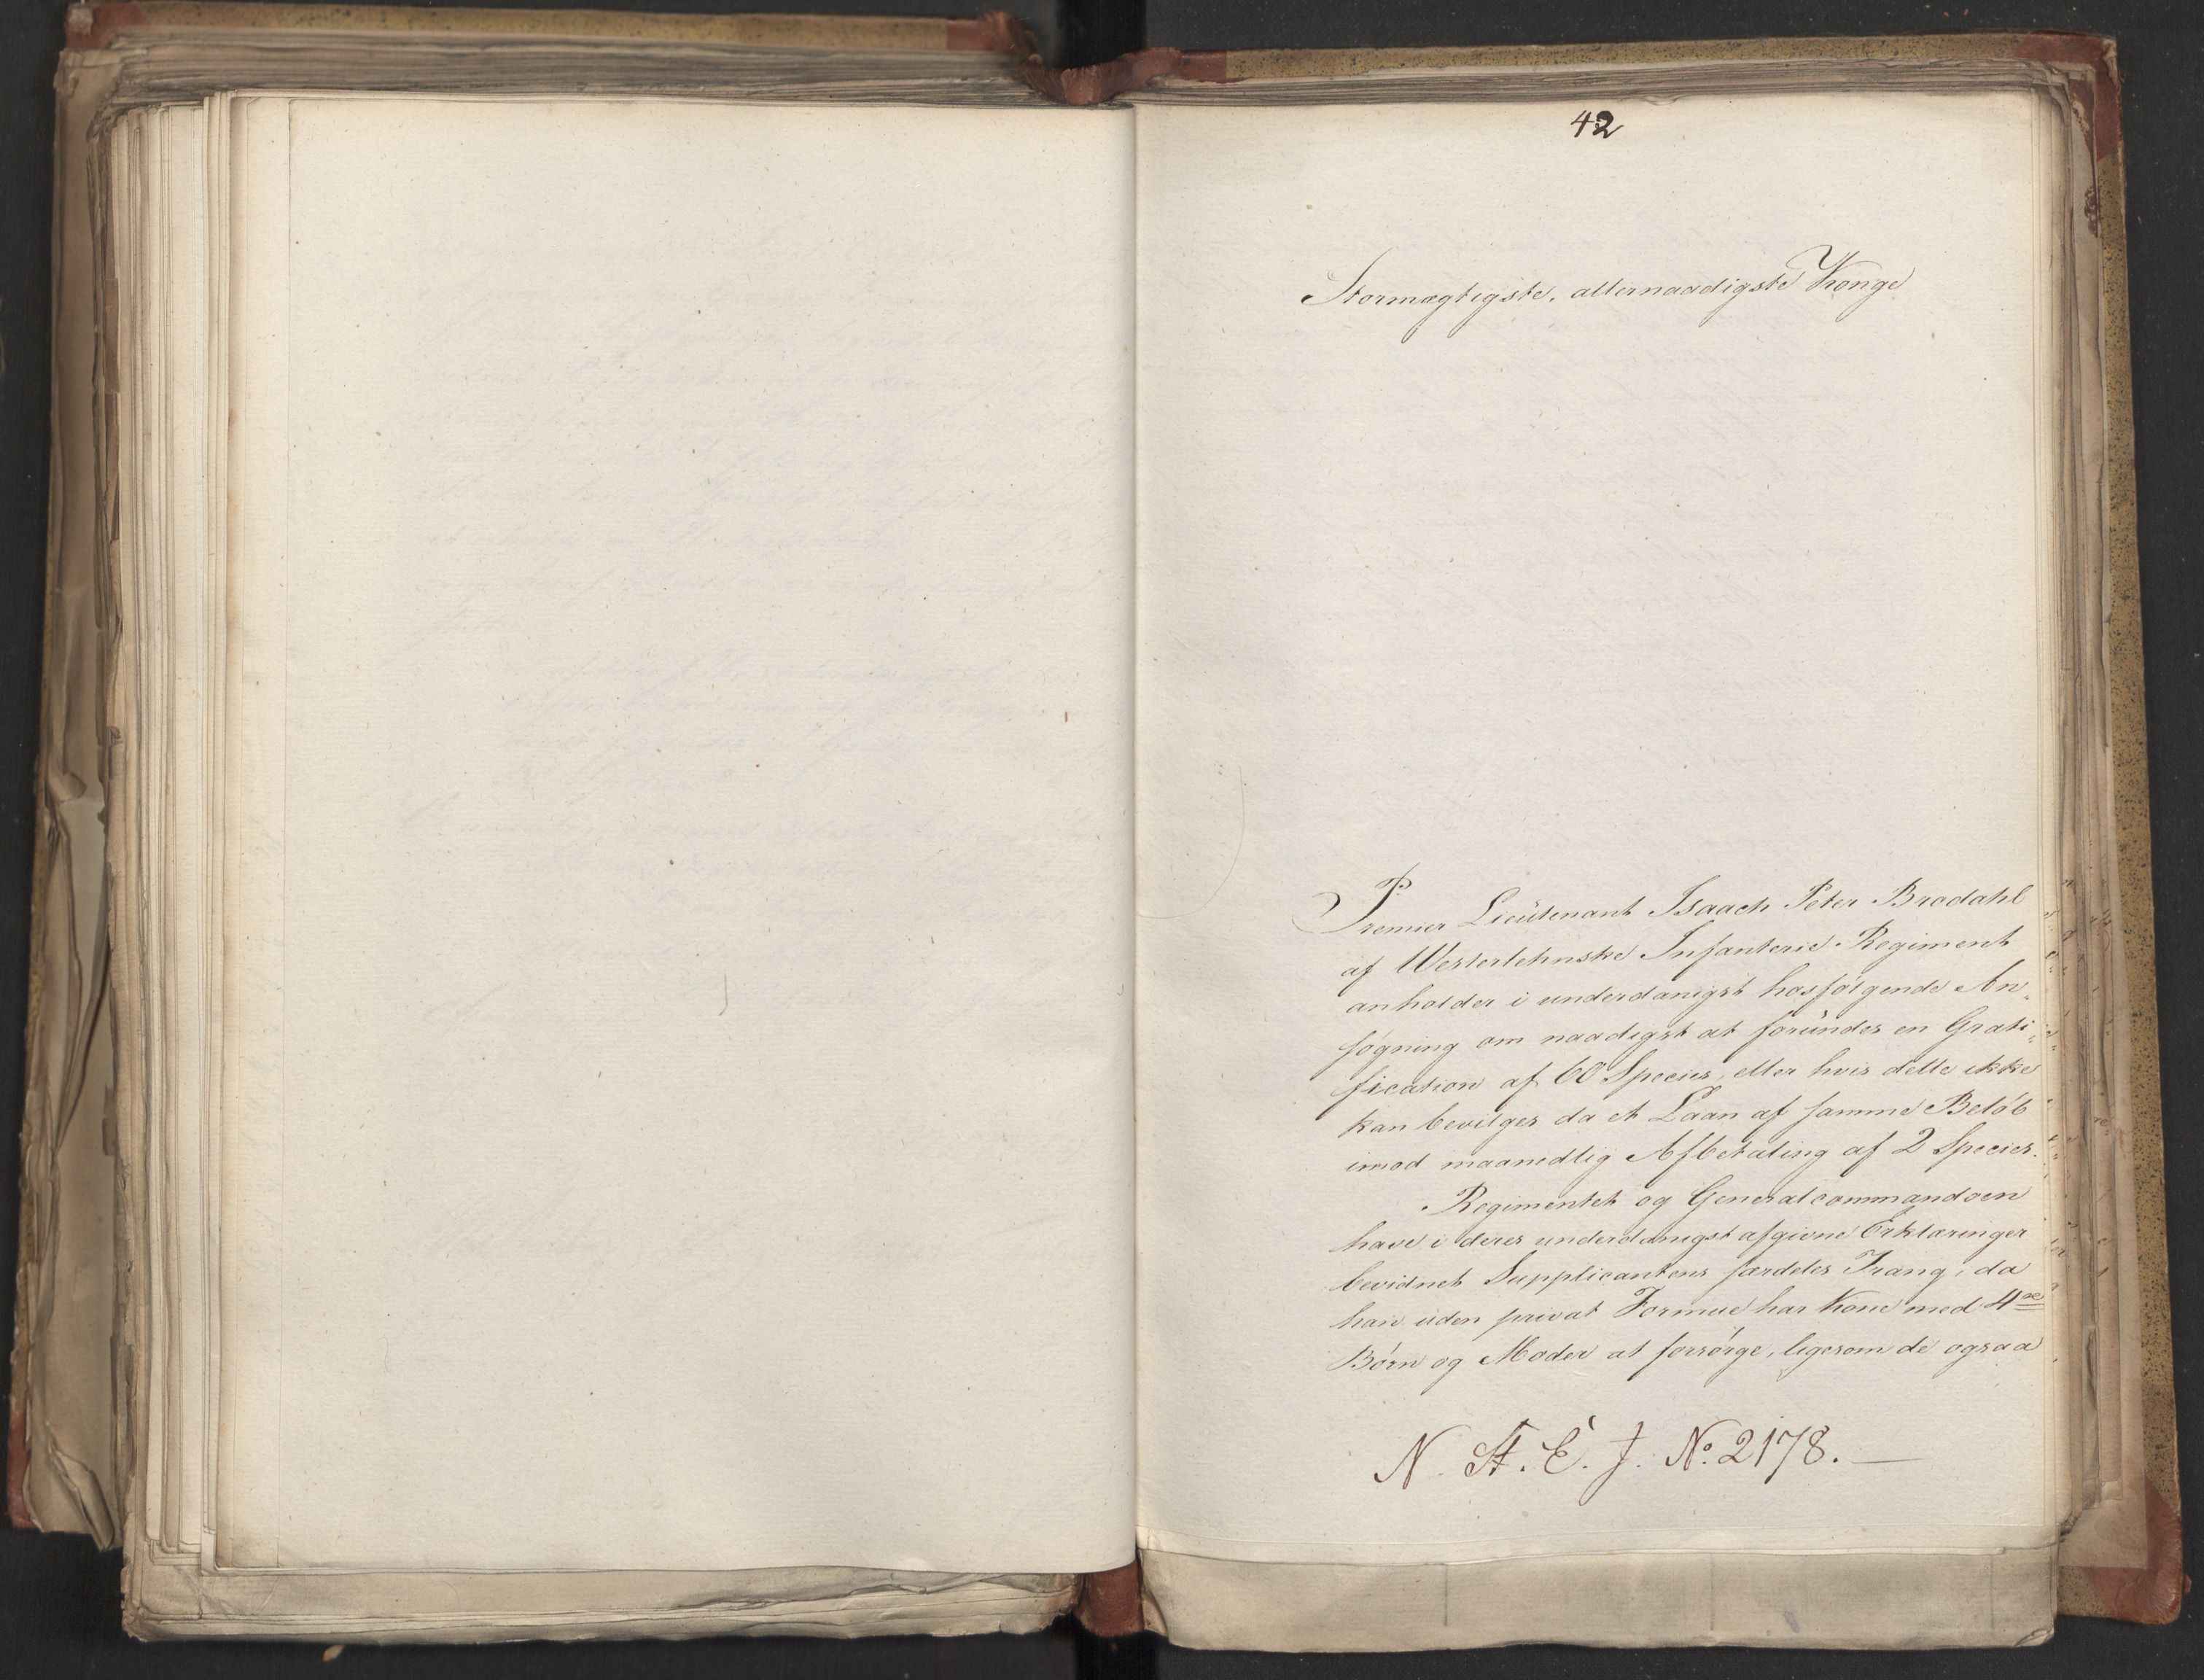 42
Stormægtigste, allernaadigste Konge
Premier Lieutenant Isaach Peter Bradahl
af Westerlehnske Infanterie Regiment
anholder i underdanigst hosfølgende An„
søgning om naadigst at forundes en Grati„
fication af 60 Species, eller hvis dette ikke
kan bevilges da et Laan af samme Beløb
imod maanedlig Afbetaling af 2 Species.
Regimentet og Generalcommandoen
have i deres underdanigst afgivne Erklæringer
bevidnet Supplicantens særdeles Trang, da
han uden privat Formue har Kone med 4re
Børn og Moder at forsørge, ligesom de ogsaa
N. St. E. J. No. 2178.